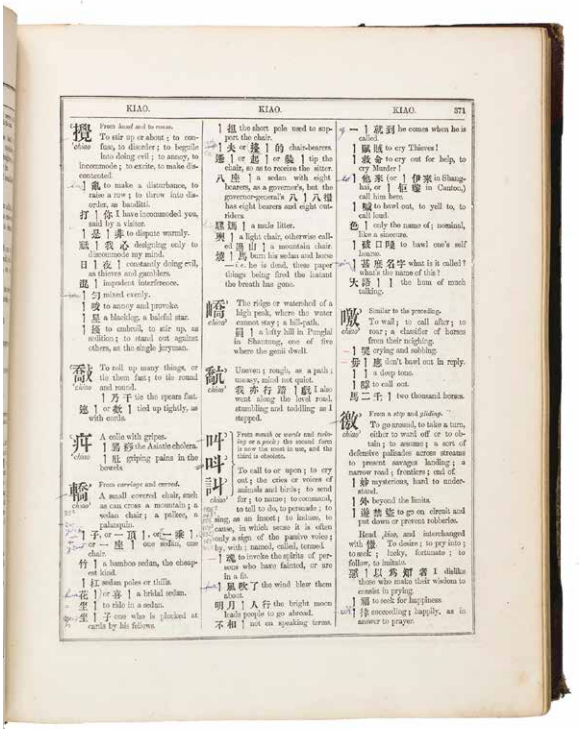 KIAO.
KIAO.
KIAO.
371
攪
From hand and to rouse.
To stir up or about; to con-
fuse, to disorder; to beguile
into doing evil; to annoy, to
incommode; to excite, to make dis-
contented.
亂 to make a disturbance, to
raise a row; to throw into dis-
order, as banditti.
打 | 你 I have incommoded you,
said by a visitor.
是 | 非 to dispute warmly.
| 我心 designing only to
discommode my mind.
日 | 夜 | constantly doing evil,
as thieves and gamblers.
混 | impudent interference.
| 勻 mixed evenly.
| to annoy and provoke.
| 星 a blackleg, a baleful star.
| 擾 to embroil, to stir up, as
sedition; to stand out against
others, as the single juryman.
To roll up many things, or
tie them fast; to tie round
and round.
| 乃干 tie the spears fast.
| or | tied up tightly, as
with cords.
A colic with gripes.
| the Asiatic cholera.
| 肚 griping pains in the
bowels.
轎
From carriage and curved.
A small covered chair, such
as can cross a mountain; a
sedan chair; a palkee, a
palanquin.
| 子, or 一頂 |, or 一乘 |,
or 一座 | one sedan, one
chair.
竹 | a bamboo sedan, the cheap-
est kind.
| 杠 sedan poles or thills.
花 | or 喜 | a bridal sedan.
坐 | to ride in a sedan.
坐 | 子 one who is plucked at
cards by his fellows.
| the short pole used to sup-
port the chair.
| 夫 or | 的 chair-bearers.
| or 起 | or | tip the
chair, so as to receive the sitter.
八座 | a sedan with eight
bearers, as a governor's, but the
governor-general's 八 | 八
has eight bearers and eight out-
riders.
騾馱 | a mule litter.
| a light chair, otherwise call-
ed 山 | a mountain chair.
| 馬 burn his sedan and horse
—i.e. he is dead, these paper
things being fired the instant
the breath has gone.
嶠
The ridge or watershed of a
high peak, where the water
cannot stay; a hill-path.
員 | a lofty hill in Punglai
in Shantung, one of five
where the genii dwelt.
Uneven; rough, as a path;
uneasy, mind not quiet.
我亦行 | I also
went along the level road,
stumbling and toddling as I
stepped.
叫
呌
訆
From mouth or words and twin-
ing or a peck; the second form
is now the most in use, and the
third is obsolete.
To call to or upon; to cry
out; the cries or voices of
animals and birds; to send
for; to name; to command,
to tell to do, to persuade; to
sing, as an insect; to induce, to
cause, in which sense it is often
only a sign of the passive voice;
by, with; named, called, termed.
| 魂 to invoke the spirits of per-
sons who have fainted, or are
in a fit.
| 風吹了 the wind blew them
about.
明月 | 人行 the bright moon
leads people to go abroad.
不和 | not on speaking terms.
一 | 就到 he comes when he is
called.
| 賊 to cry Thieves!
| 救命 to cry out for help, to
cry Murder!
| 他來 (or | 伊來 in Shang-
hai, or | 佢嚟 in Canton,)
call him here.
| 喊 to bawl out, to yell, to
call loud.
色 | only the name of; nominal,
like a sinecure.
| 破口 to bawl one's self
hoarse.
| 甚麽名字 what is it called?
what's the name of this?
大語 | | the hum of much
talking.
噭
Similar to the preceding.
To wail; to call after; to
roar; a classifier of horses
from their neighing.
| 哭 crying and sobbing.
毋 | 應 don't bawl out in reply.
| | a deep tone.
| 呼 to call out.
馬二千 | two thousand horses.
徼
From a step and gliding.
To go around, to take a turn,
either to ward off or to ob-
tain; to assume; a sort of
defensive palisades across streams
to prevent savages landing; a
narrow road; frontiers; end of.
| 妙 mysterious, hard to under-
stand.
| 外 beyond the limits.
| 禁盜 to go on circuit and
put down or prevent robberies.
Read kiao, and interchanged
with 僥. To desire; to pry into;
to seek; lucky, fortunate; to
follow, to imitate.
惡 | 以爲知者 I dislike
those who make their wisdom to
consist in prying.
| 福 to seek for happiness.
| 倖 succeeding; happily, as in
answer to prayer.